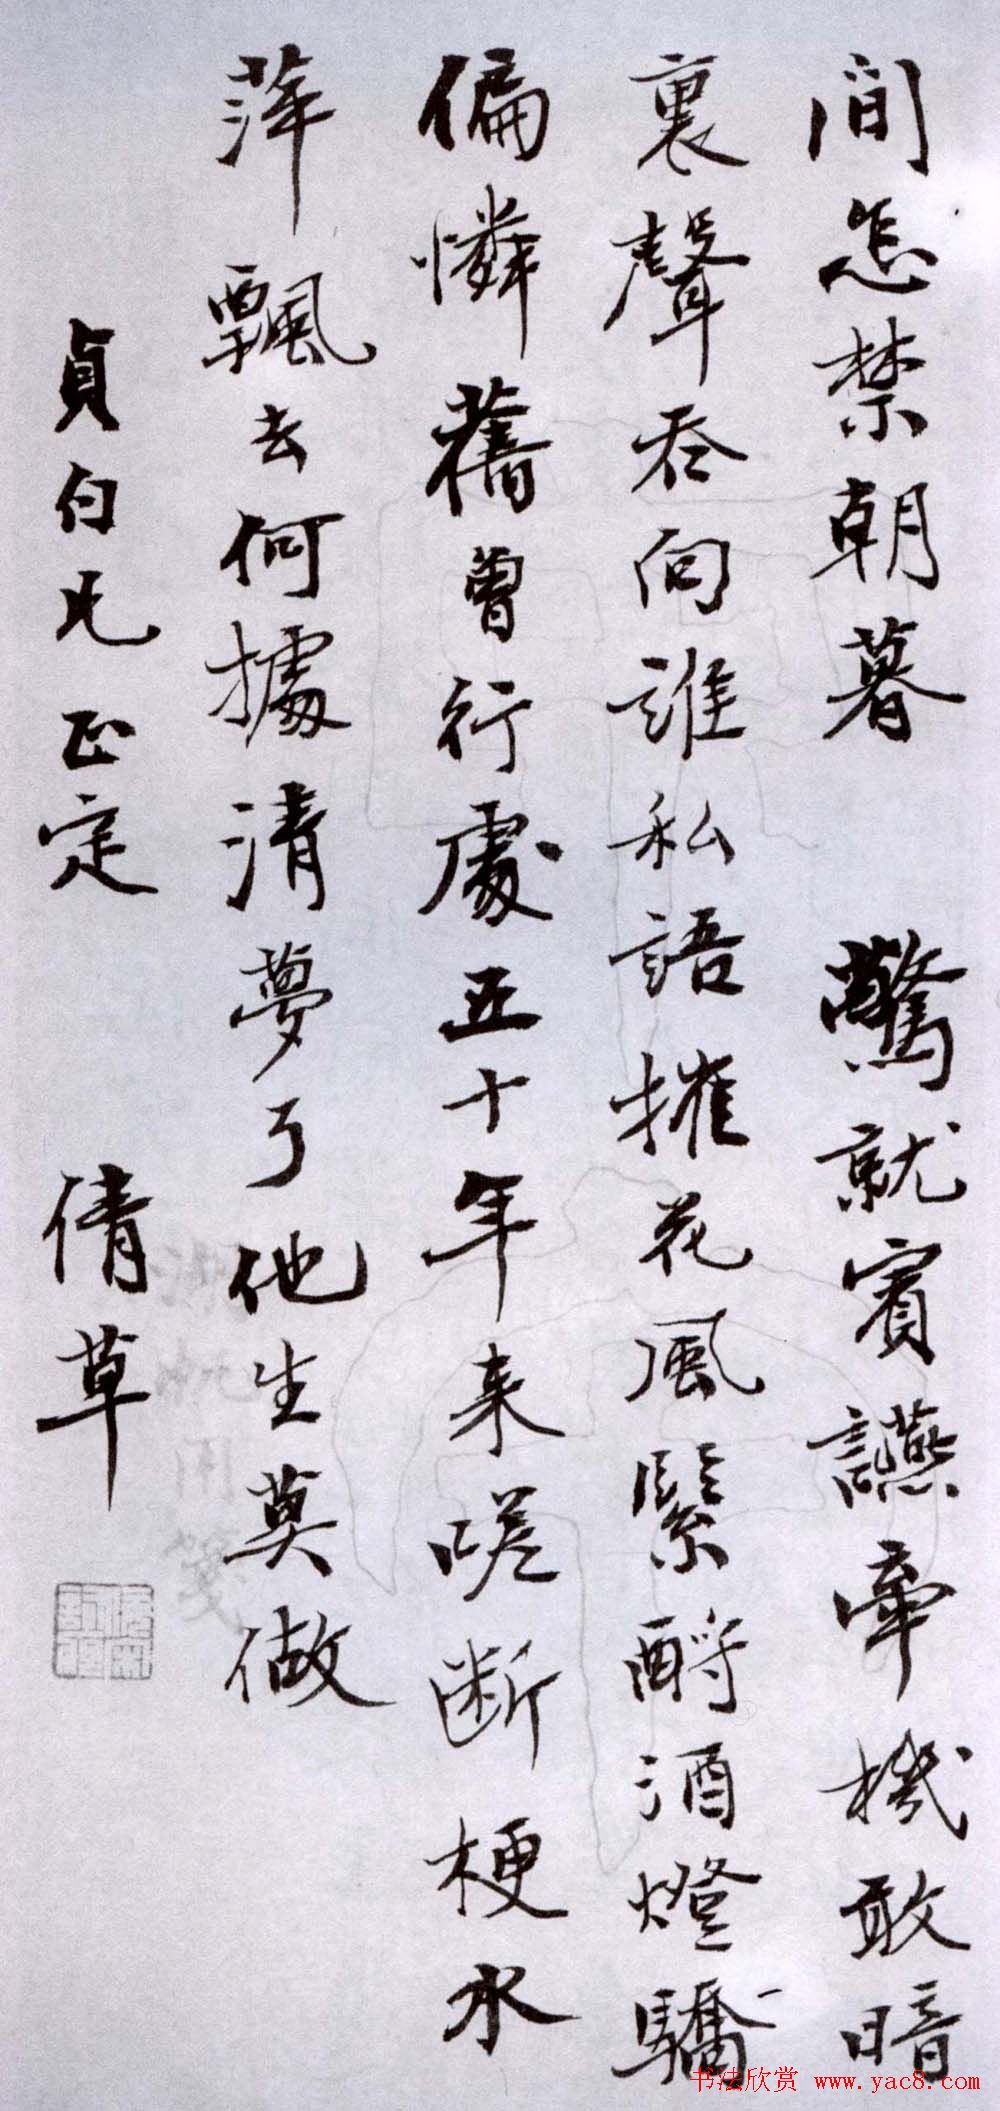 间怎禁朝暮 驚就賓讌牽機敢暗
裏聲吞向誰私語擁花風緊酹酒燈驕
偏憐舊曾行處五十年来嗟断梗水
萍飄去何據清夢了他生莫做
貞白兄正定 倩草
书法欣赏 www.yac8.com